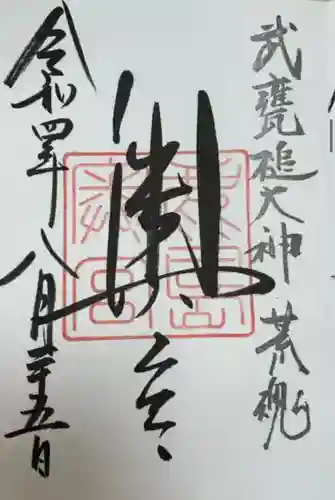 武甕槌大神 荒魂
奥宮
令和四年八月二十五日